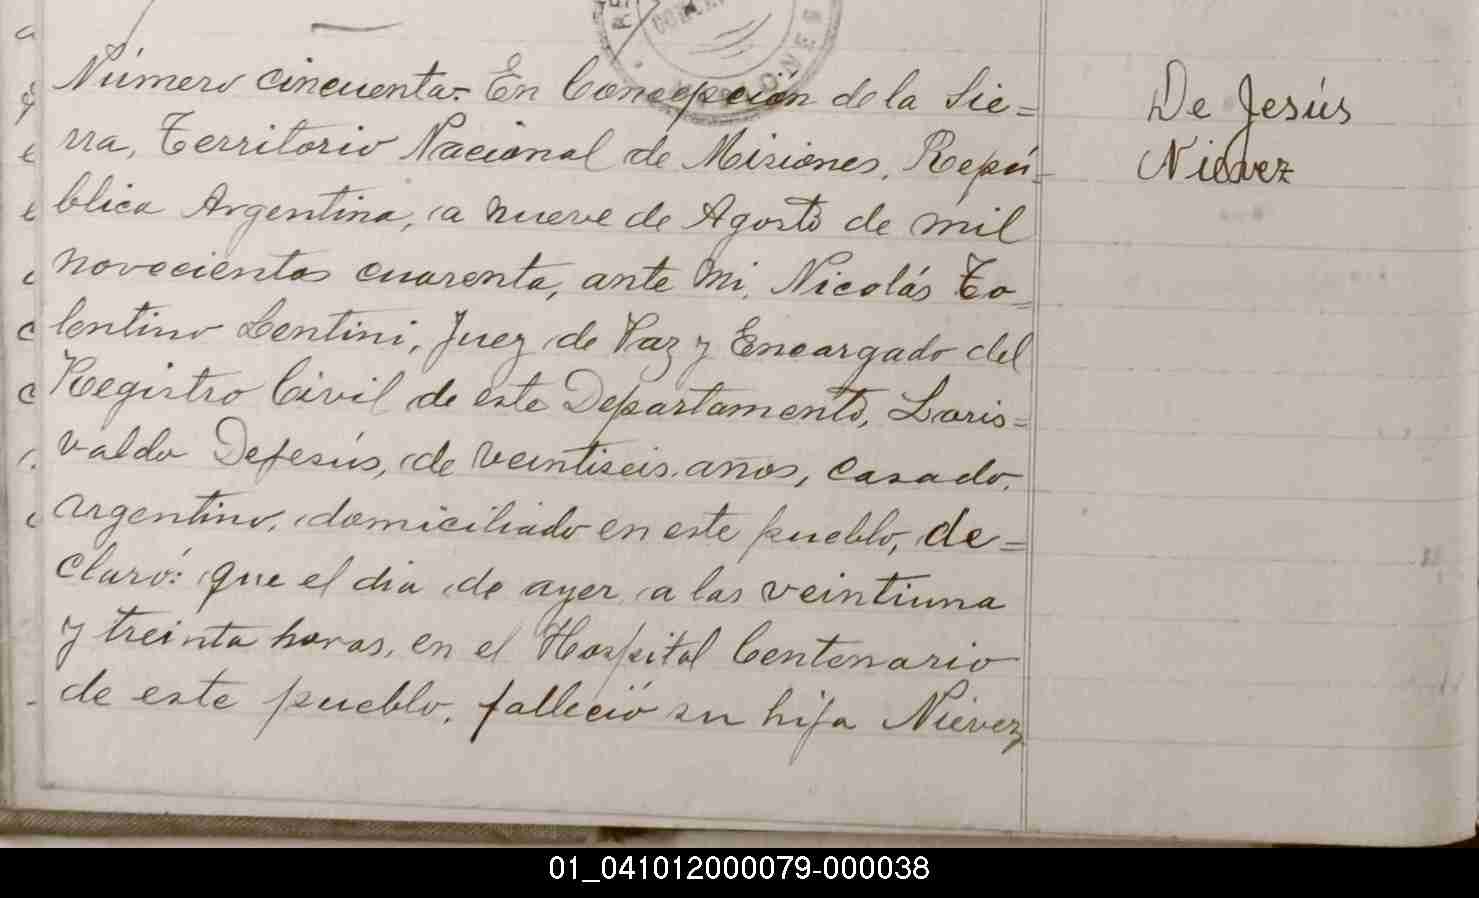 Número cincuenta.- En Concepción de la Sie=
rra, Territorio Nacional de Misiones, Repú-
blica Argentina, a nueve de Agosto de mil
novecientos cuarenta, ante mi, Nicolás To-
lentino Lentini, Juez de Paz y Encargado del
Registro Civil de este Departamento, Loris=
valdo Dejesús, de veintiseis años, casado,
argentino, domiciliado en este pueblo, de=
claró: que el dia de ayer a las veintiuna
y treinta horas, en el Hospital Centenario
de este pueblo, falleció su hija Nievez,
De Jesús
Nievez
01_041012000079-000038